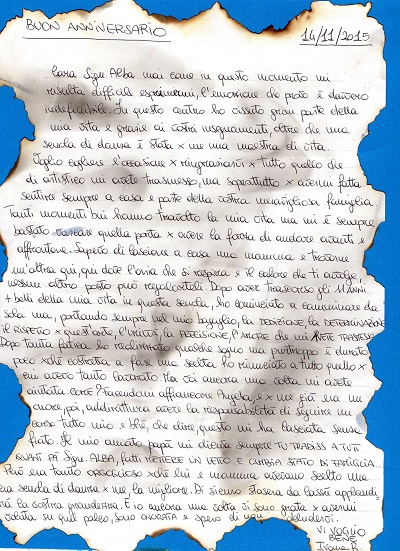 BUON ANNIVERSARIO
14/11/2015
Cara Sign. Alba mai come in questo momento mi
risulta difficile esprimermi, l'emozione che provo è davvero
indefinibile. In questo centro ho vissuto gran parte della
mia vita e grazie ai vostri insegnamenti, oltre che una
scuola di danza è stata x me una maestra di vita.
Voglio cogliere l'occasione x ringraziarvi x tutto quello che
di artistico mi avete trasmesso, ma soprattutto x avermi fatta
sentire sempre a casa e parte della vostra meravigliosa famiglia
Tanti momenti bui hanno travolto la mia vita ma mi è sempre
bastato varcare quella porta x avere la forza di andare avanti e
affrontare. Sapevo di lasciare a casa una mamma e trovarne
un'altra qui, qui dove l'aria che si respira e il calore che ti avvolge,
nessun altro posto può regalarteli. Dopo aver trascorso gli 11 ANNI
+ belli della mia vita in questa scuola, ho cominciato a camminare da
sola ma, portando sempre nel mio bagaglio, la DEDIZIONE, la DETERMINAZIONE
il RISPETTO x quest'arte, l'UMILTÀ, la PRECISIONE, L'AMORE che mi AVETE TRASMESSO.
Dopo tanta fatica ho realizzato qualche sogno ma purtroppo è durato
poco xché costretta a fare una scelta, ho rinunciato a tutto quello x
cui avevo tanto lavorato. Ma voi ancora una volta mi avete
aiutata come? Facendomi affiancare Angela, e x me già era un
onore, poi, addirittura avere la responsabilità di seguire un
corso tutto mio e bhè, che dire, questo mi ha lasciata senza
fiato. Il mio amato papà mi diceva sempre TU TRADISS A TUTT
QUANT PA Sign. ALBA, fatti METTERE UN LETTO E CAMBIA STATO DI FAMIGLIA
Però era tanto orgoglioso xchè lui e mamma avevano scelto una
scuola di danza x me, la migliore. Di sicuro stasera da lassù applaudirà
la vostra grandezza. E io ancora una volta vi sono grata x avermi
voluta su quel palco, sono ONORATA e spero di non deludervi.
VI VOGLIO
BENE